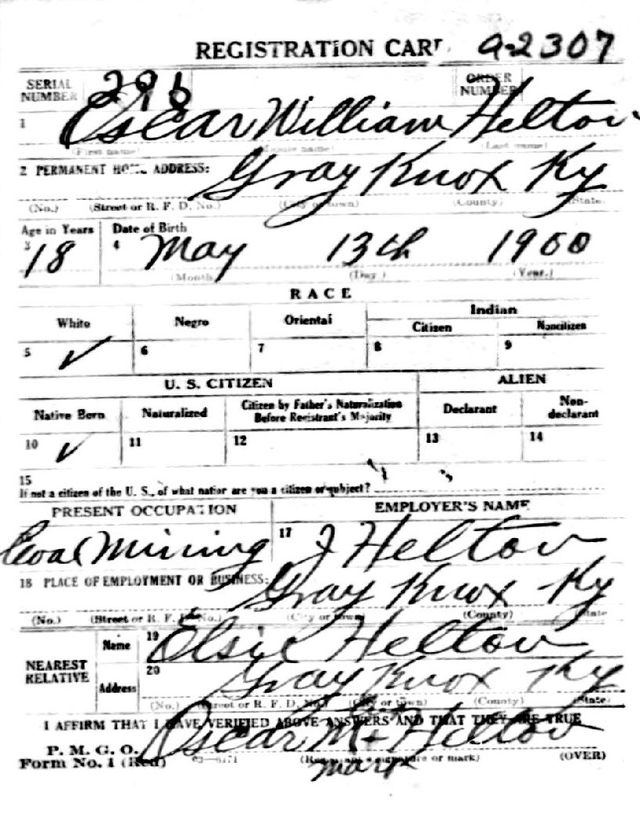 REGISTRATION CARD a-2307
SERIAL NUMBER 296 ORDER NUMBER
1 Oscar William Helton
(First name) (Middle name) (Last name)
2 PERMANENT HOME ADDRESS: Gray Knox Ky
(No.) (Street or R. F. D. No.) (City or town) (County) (State)
Age in Years Date of Birth
3 18 4 May 13th 1900
(Month) (Day) (Year.)
RACE
White Negro Oriental Indian
Citizen Noncitizen
5 ✓ 6 7 8 9
U. S. CITIZEN ALIEN
Native Born Naturalized Citizen by Father's Naturalization Before Registrant's Majority Declarant Non-declarant
10 ✓ 11 12 13 14
15
If not a citizen of the U. S., of what nation are you a citizen or subject?
PRESENT OCCUPATION EMPLOYER'S NAME
Coal Mining 17 J Helton
18 PLACE OF EMPLOYMENT OR BUSINESS: Gray Knox Ky
(No.) (Street or R. F. D. No.) (City or town) (County) State
NEAREST RELATIVE Name 19 Elsie Helton
Address 20 Gray Knox Ky
(No.) (Street or R. F. D. No.) (City or town) (County) (State)
I AFFIRM THAT I HAVE VERIFIED ABOVE ANSWERS AND THAT THEY ARE TRUE
P. M. G. O.
Form No. 1 (Red) Oscar M + Helton
mark (Registrant's signature or mark) (OVER)